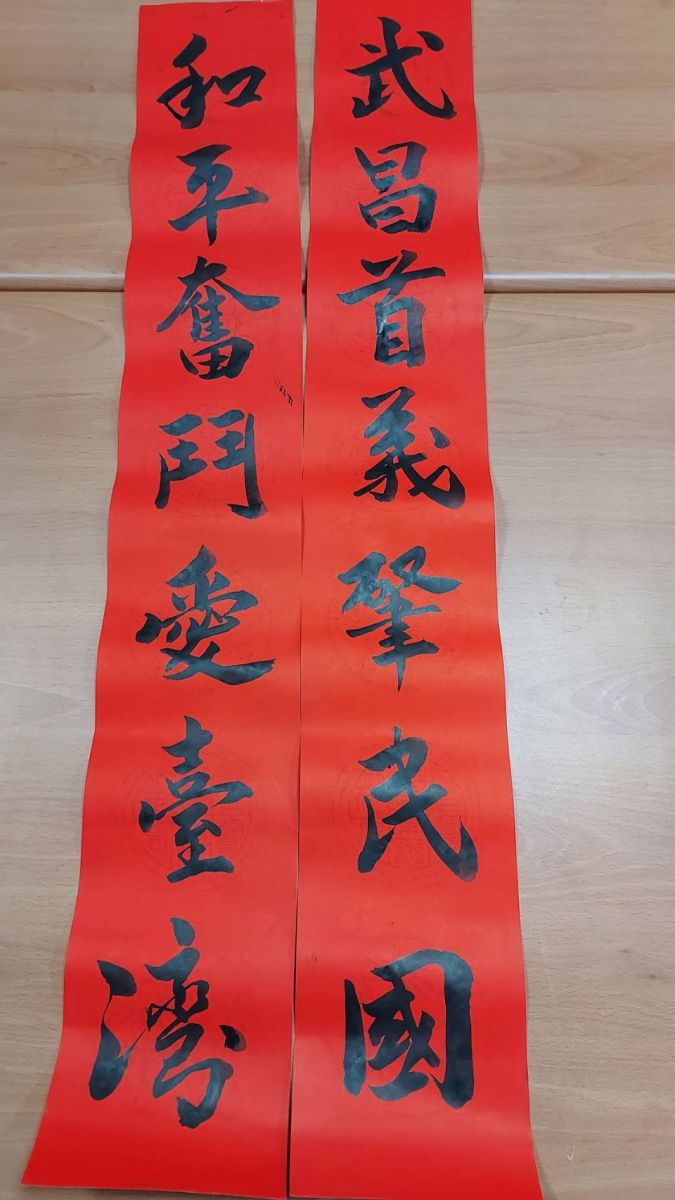 武昌首義肇民國
和平奮鬥愛臺灣